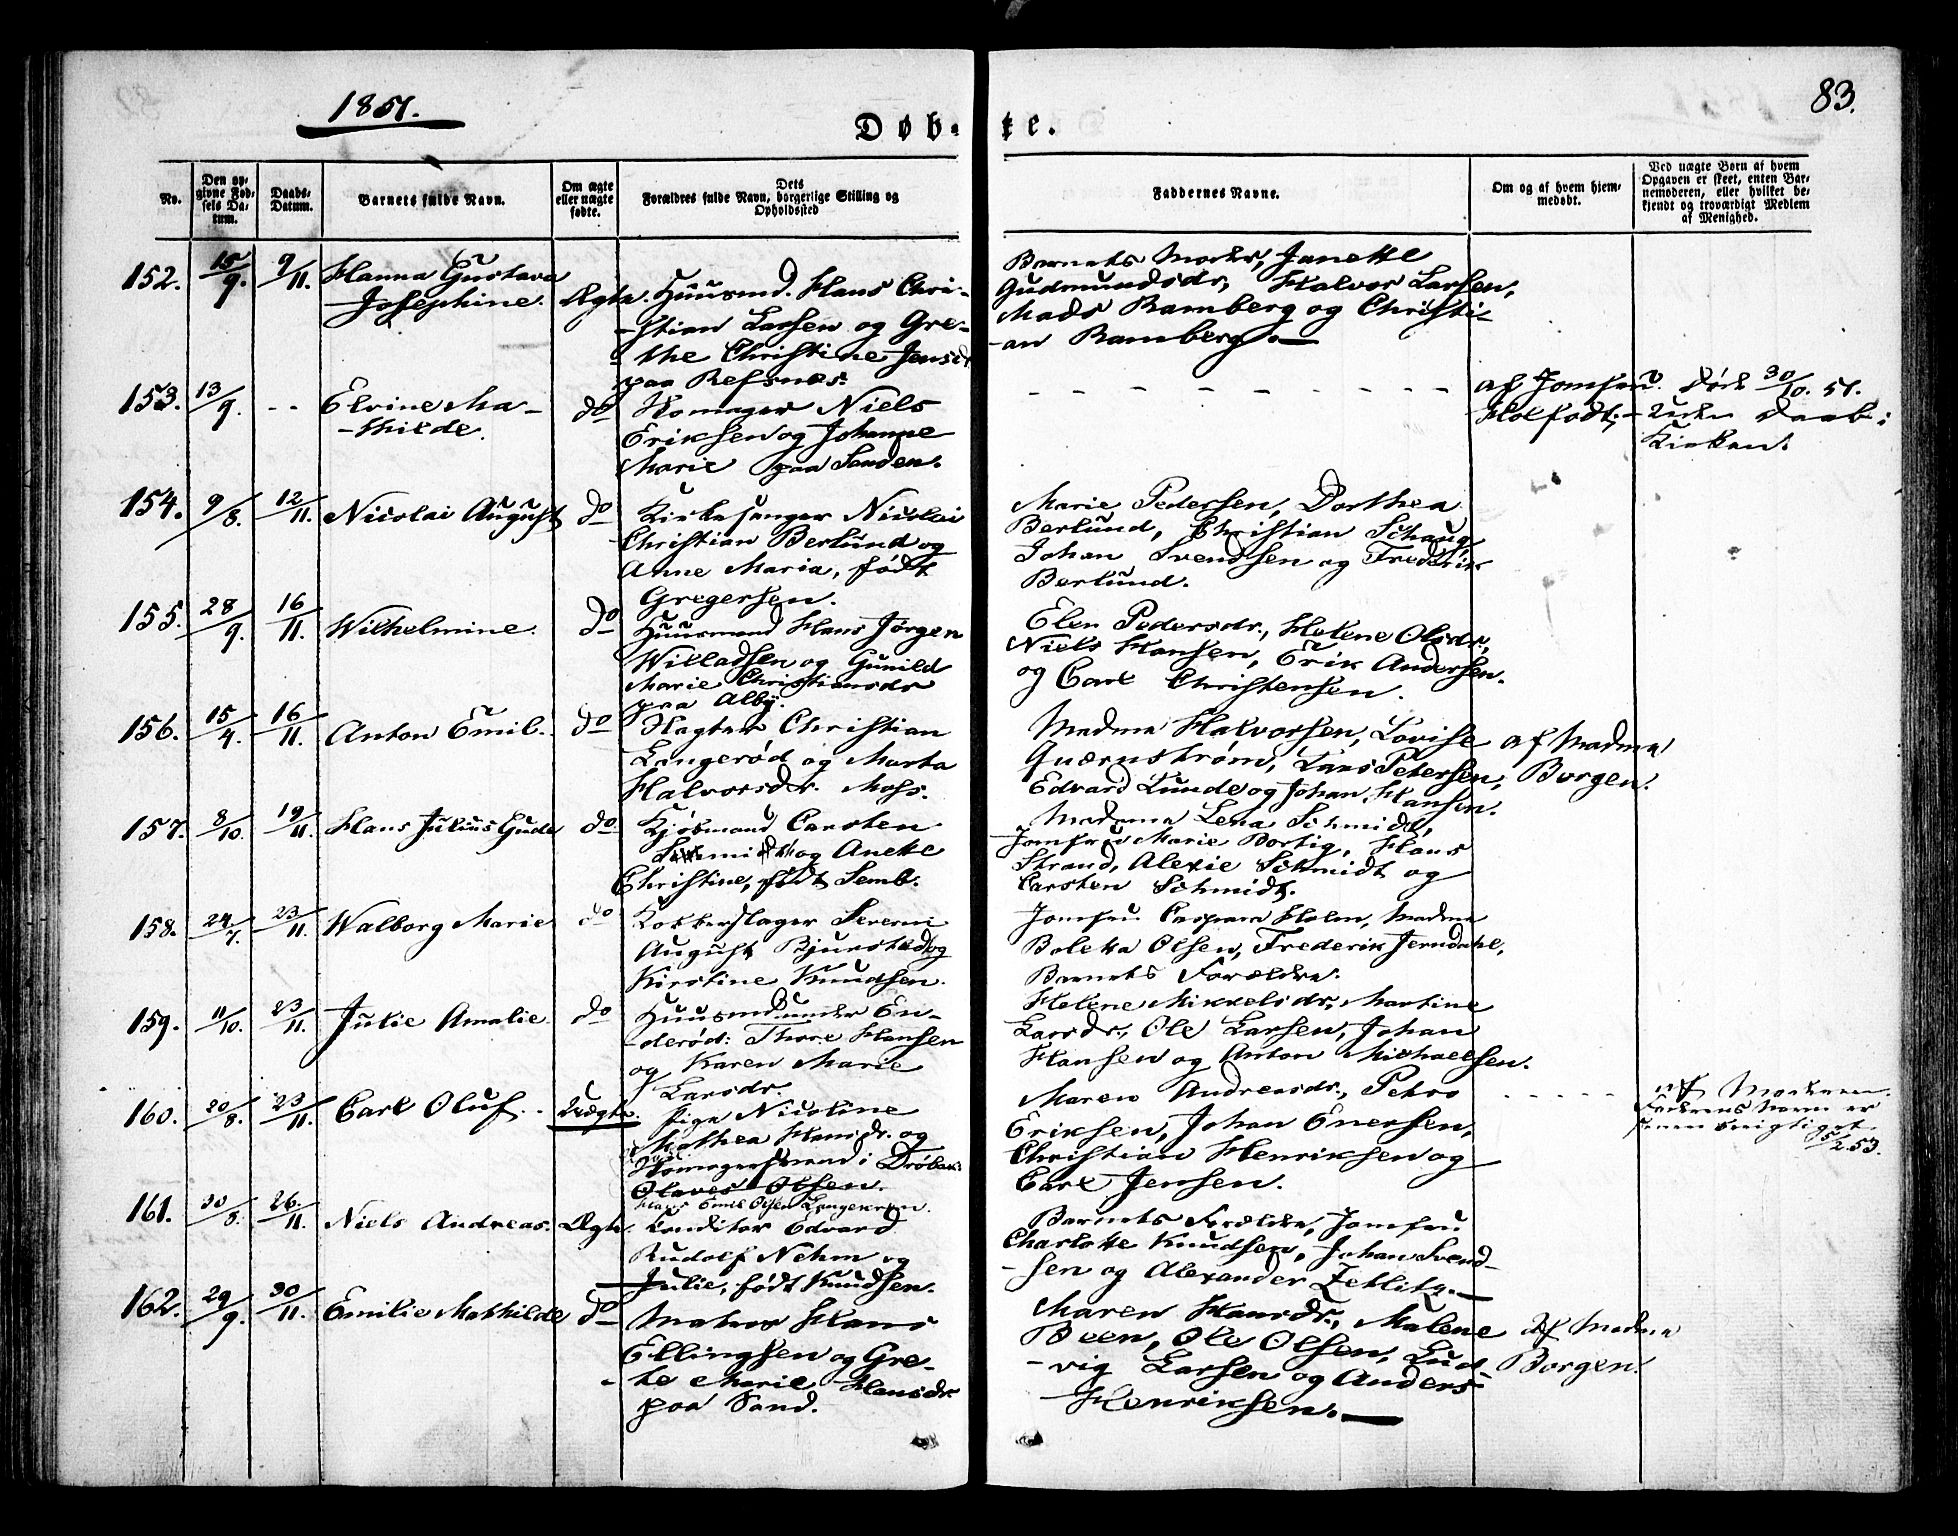 1851.
83.
Døb-
te.
No.
Den op-
givne Fød-
sels Da-
tum.
Daabs-
Datum.
Barnets fulde Navn.
Om ægte
eller uægte
fødte.
Dets
Forældres fulde Navn, borgerlige Stilling og
Opholdssted
Faddernes Navne.
Om og af hvem hjem-
medøbt.
Ved uægte Børn af hvem
Opgaven er skeet, enten Bar-
nemoderen, eller hvilket be-
kjendt og troværdigt Medlem
af Menighed.
152. 15/9. 9/11. Hanna Gustava
Josephine. Ægte. Huusmd. Hans Chri-
-stian Larsen og Gre-
-the Christine Jensdr
paa Refsnæs.
Barnets Moder, Janette
Gudmundsdr, Halvor Larsen,
Mads Ramberg og Christi-
-an Ramberg.
153. 13/9. -- Elvine Ma-
-thilde. do Homager Niels
Eriksen og Johanne
Marie paa Sanden.
af Jomfru
Holfodt.
Død 30/10. 51.
Uden Daab i
Kirken.
154. 9/8. 12/11. Nicolai August do Kirkesanger Nicolai
Christian Berlund og
Anne Maria, født
Gregersen.
Marie Pedersen, Dorthea
Berlund, Christian Schaug,
Johan Svendsen og Frederik
Berlund.
155. 28/9. 16/11. Wilhelmine. do Huusmand Hans Jørgen
Willadsen og Gunild
Marie Christiansdr
paa Alby.
Elen Pedersdr., Helene Olsdr,
Niels Hansen, Erik Andersen
og Carl Christensen.
156. 15/4. 16/11. Anton Emil. do Christian
Langerød og Marta
Halvorsdr. Moss.
Madme Halvorsen, Lovise
Quærnstrøm, Lars Petersen,
Edvard Lunde og Johan Hansen.
af Madme
Borgen.
157. 8/10. 19/11. Hans Julius Gude do Kjøbmand Carsten
Schmidt og Anette
Christine, født Semb.
Madame Lena Schmidt,
Jomfru Marie Bortig, Hans
Strand, Alexie Schmidt og
Carsten Schmidt.
158. 24/7. 23/11. Walborg Marie do Kobberslager Severin
August Bjunstad og
Kirstine Knudsen.
Jomfru Caspara Holm, Madme
Boletta Olsen, Frederik Jerndahl,
Barnets Forældre.
159. 11/10. 23/11. Julie Amalie. do Huusmd under En-
-derød: Thore Hansen
og Karen Marie
Larsdr.
Helene Mikkelsdr, Martine
Larsdr., Ole Larsen, Johan
Hansen og Anton Michaelsen.
160. 20/8. 23/11. Carl Oluf. Uægte. Pige Nicoline
Mathea Hansdr. og
Homagersvend i Drøbak:
Olaves Olsen.
Hans Emil Olsen Langekræn.
Maren Andreasdr., Petro
Eriksen, Johan Enersen,
Christian Henriksen og
Carl Jensen.
af Moderen.
Faderens Navn er
senere berigtiget
5/2.53.
161. 30/8. 26/11. Niels Andreas. Ægte. Conditor Edvard
Rudolf Nehm og
Julie, født Knudsen.
Barnets Forældre, Jomfru
Charlotte Knudsen, Johan Svend-
-sen og Alexander Zetlitz.
162. 29/9. 30/11. Emilie Mathilde do Matros Hans
Ellingsen og Gre-
-te Marie Hansdr
paa Sand.
Maren Hansdr., Malene
Been, Ole Olsen, Lud-
-vig Larsen og Anders
Henriksen.
Af Madme
Borgen.